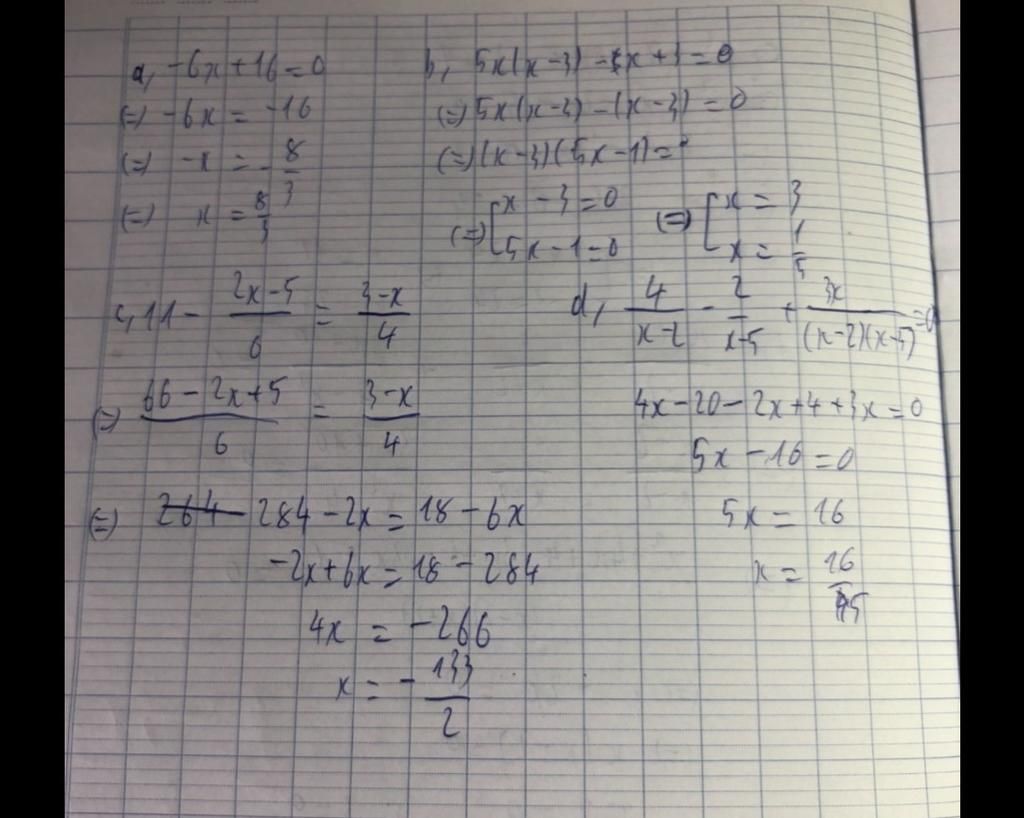 a, -6x + 16 = 0
(=) -6x = -16
(=) -x = -8/3
(=) x = 8/3
b, 5x(x-3) - x + 3 = 0
(=) 5x(x-3) - (x-3) = 0
(=) (x-3)(5x-1) = 0
(=) [x - 3 = 0 (=) [x = 3
5x - 1 = 0 x = 1/5
c, 11 - (2x-5)/6 = (3-x)/4
(=) (66 - 2x + 5)/6 = (3-x)/4
(=) 264 284 - 2x = 18 - 6x
-2x + 6x = 18 - 284
4x = -266
x = -133/2
d, 4/(x-2) - 2/(x-5) + 3x/((x-2)(x-5)) = 0
4x - 20 - 2x + 4 + 3x = 0
5x - 16 = 0
5x = 16
x = 16/5